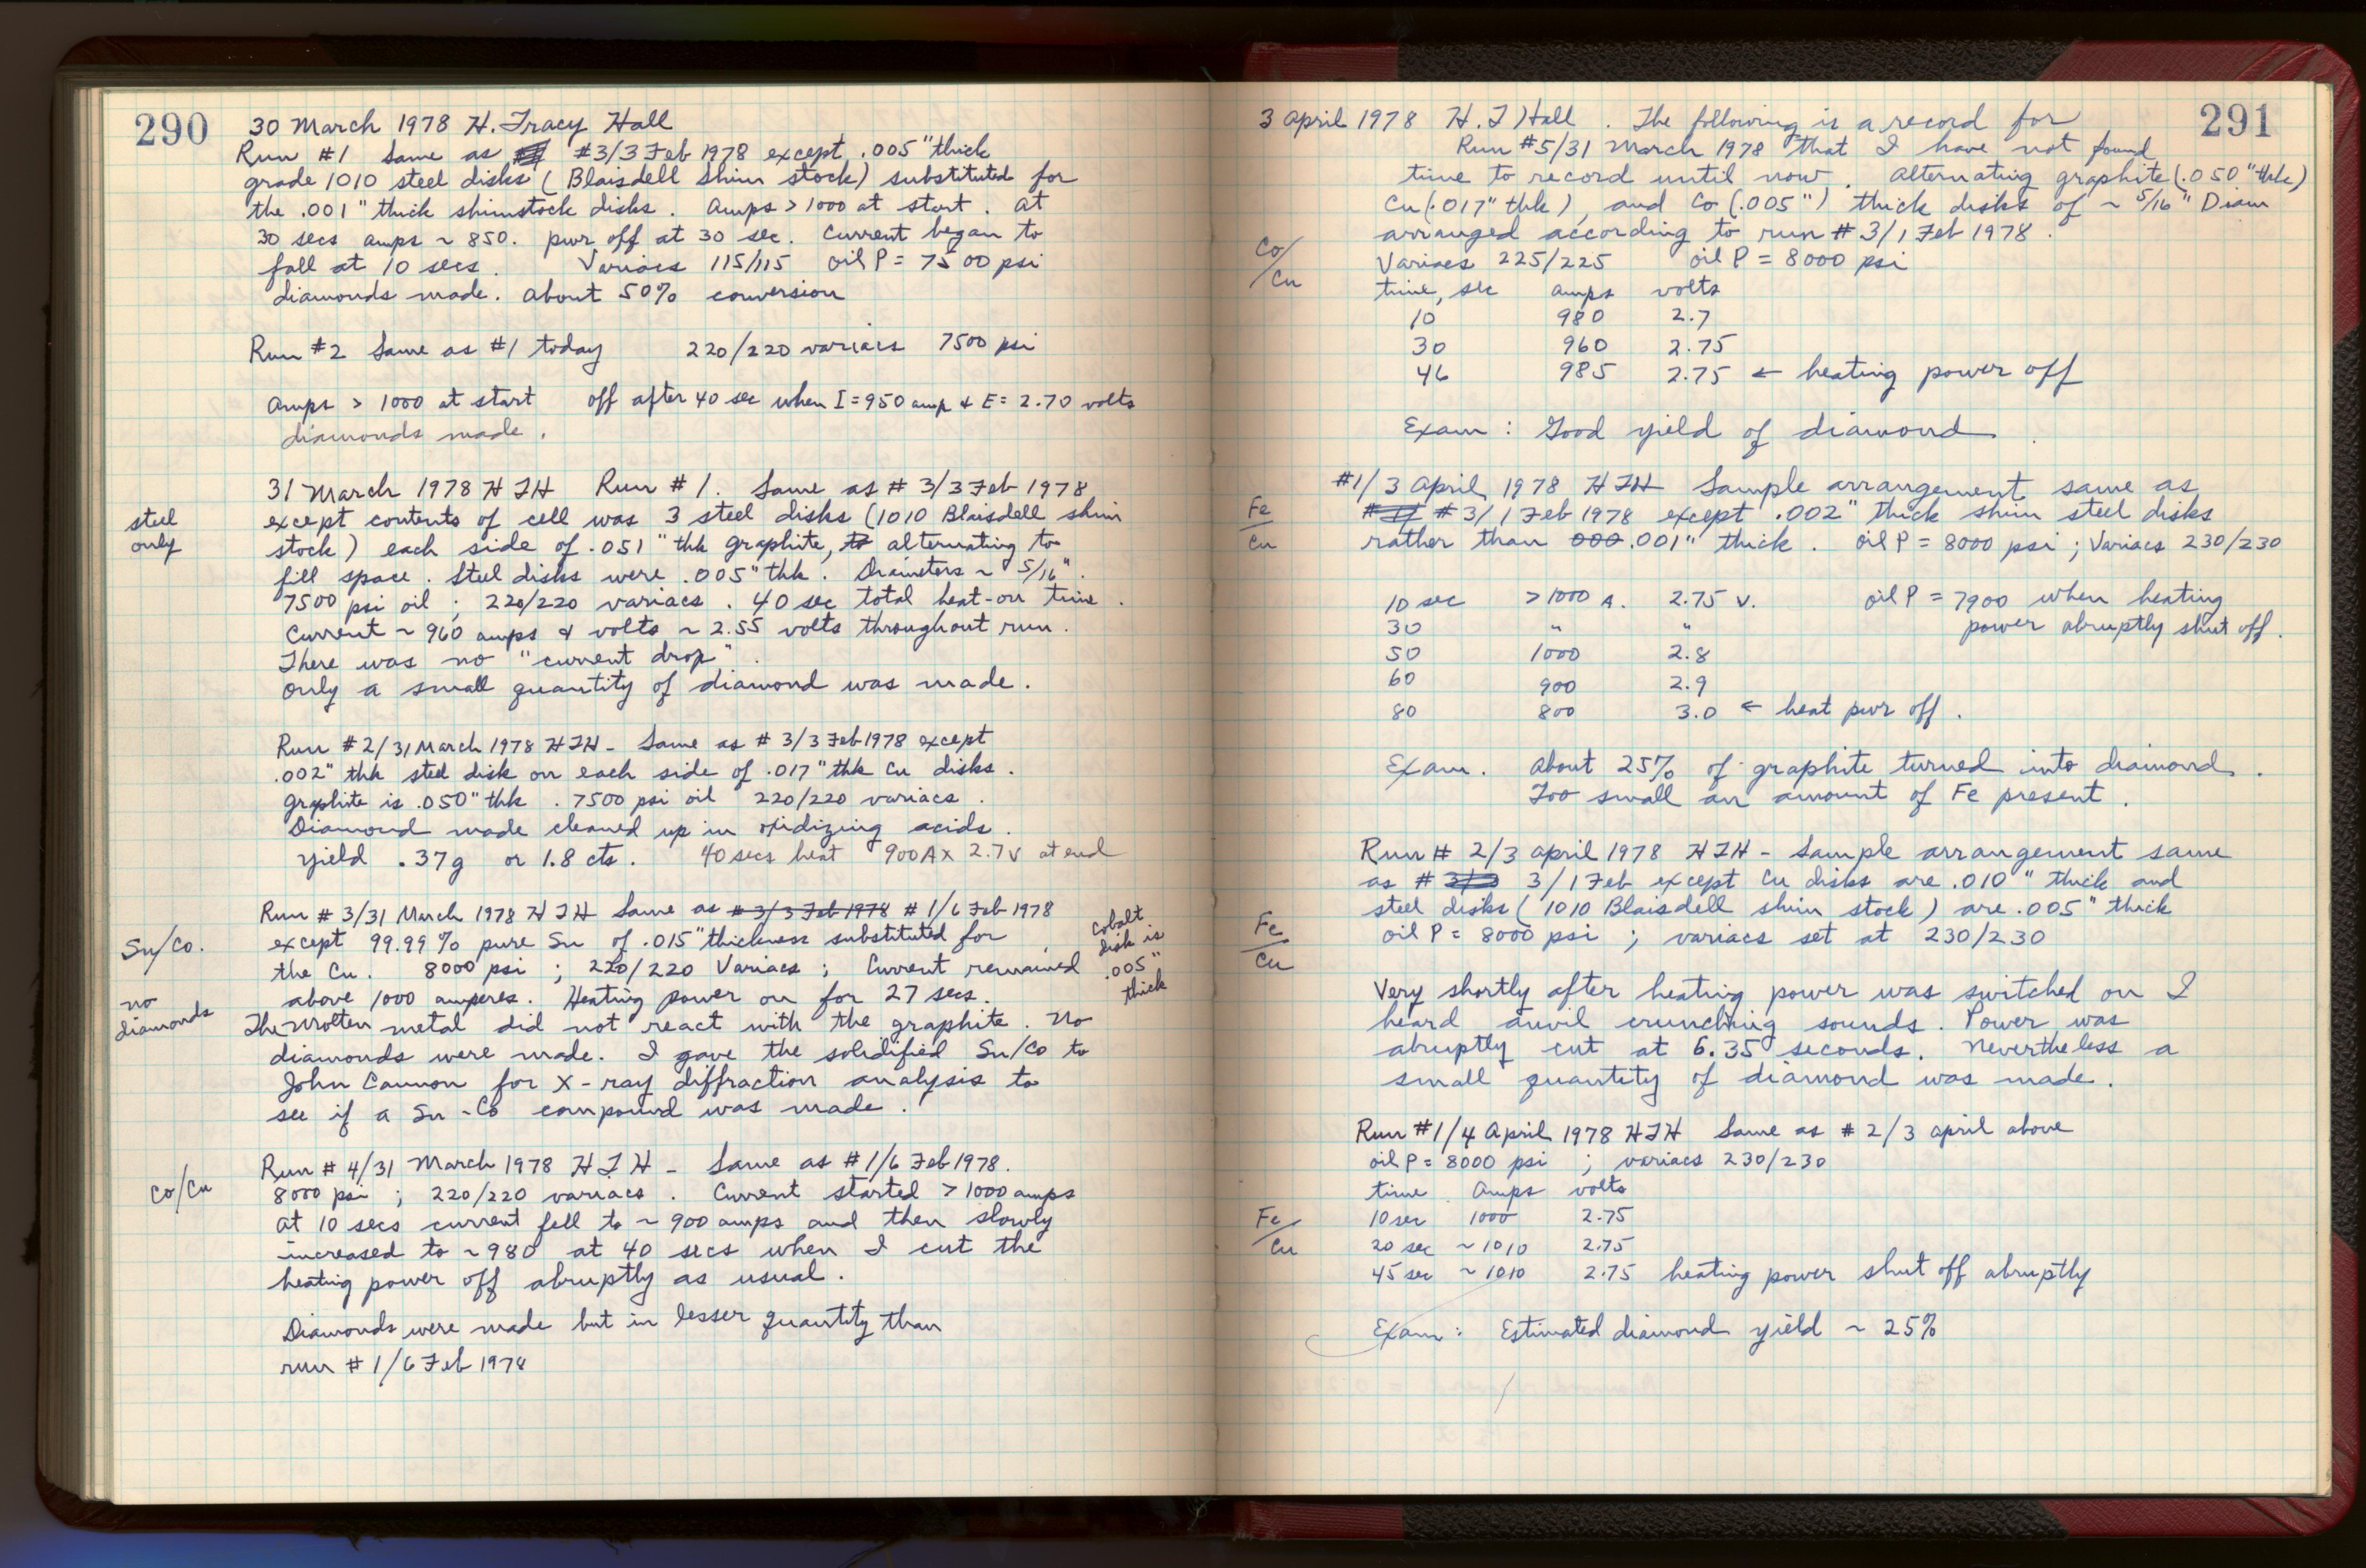 290
30 March 1978 H. Tracy Hall
Run #1 Same as #3/3 Feb 1978 except .005" thick
grade 1010 steel disks (Blaisdell shim stock) substituted for
the .001" thick shimstock disks. Amps > 1000 at start. At
30 secs amps ~ 850. pwr off at 30 sec. Current began to
fall at 10 secs. Variacs 115/115 oil P = 7500 psi
diamonds made. About 50% conversion
Run #2 Same as #1 today 220/220 variacs 7500 psi
Amps > 1000 at start off after 40 sec when I = 950 amp & E = 2.70 volts
diamonds made.
31 March 1978 HTH Run #1. Same as #3/3 Feb 1978
steel only
except contents of cell was 3 steel disks (1010 Blaisdell shim
stock) each side of .051" thk graphite, alternating to
fill space. Steel disks were .005" thk. Diameters ~ 5/16".
7500 psi oil; 220/220 variacs. 40 sec total heat-on time.
Current ~ 960 amps & volts ~ 2.55 volts throughout run.
There was no "current drop".
Only a small quantity of diamond was made.
Run #2/31 March 1978 HTH - Same as #3/3 Feb 1978 except
.002" thk steel disk on each side of .017" thk Cu disks.
Graphite is .050" thk. 7500 psi oil 220/220 variacs.
Diamond made cleaned up in oxidizing acids.
Yield .37g or 1.8 cts. 40 secs heat 900A x 2.7v at end
Run #3/31 March 1978 HTH Same as #3/3 Feb 1978 #1/6 Feb 1978
Sn/Co.
except 99.99% pure Sn of .015" thickness substituted for
the Cu. 8000 psi; 220/220 Variacs; Current remained
cobalt
disk is
.005"
thick
no
diamonds
above 1000 amperes. Heating power on for 27 secs.
The molten metal did not react with the graphite. No
diamonds were made. I gave the solidified Sn/Co to
John Cannon for X-ray diffraction analysis to
see if a Sn-Co compound was made.
Run #4/31 March 1978 HTH - Same as #1/6 Feb 1978.
Co/Cu
8000 psi; 220/220 variacs. Current started > 1000 amps
at 10 secs current fell to ~ 900 amps and then slowly
increased to ~980 at 40 secs when I cut the
heating power off abruptly as usual.
Diamonds were made but in lesser quantity than
run #1/6 Feb 1978
291
3 April 1978 H. T Hall. The following is a record for
Run #5/31 March 1978 that I have not found
time to record until now. Alternating graphite (.050" thk)
Cu (.017" thk), and Co (.005") thick disks of ~ 5/16" Diam
arranged according to run #3/1 Feb 1978.
Co/Cu
Variacs 225/225 oil P = 8000 psi
time, sec amps volts
10 980 2.7
30 960 2.75
46 985 2.75 ← heating power off
Exam: Good yield of diamond.
#1/3 April 1978 HTH Sample arrangement same as
Fe/Cu
#3/1 Feb 1978 except .002" thick shim steel disks
rather than 000 .001" thick. Oil P = 8000 psi; Variacs 230/230
10 sec > 1000 A. 2.75 V. oil P = 7900 when heating
30 " " power abruptly shut off.
50 1000 2.8
60 900 2.9
80 800 3.0 ← heat pwr off.
Exam. About 25% of graphite turned into diamond.
Too small an amount of Fe present.
Run # 2/3 April 1978 HTH - Sample arrangement same
as # 3/1 Feb except Cu disks are .010" thick and
steel disks (1010 Blaisdell shim stock) are .005" thick
Fe/Cu
oil P = 8000 psi; variacs set at 230/230
Very shortly after heating power was switched on I
heard anvil crunching sounds. Power was
abruptly cut at 6.35 seconds. Nevertheless a
small quantity of diamond was made.
Run #1/4 April 1978 HTH Same as #2/3 April above
oil P = 8000 psi; variacs 230/230
time Amps volts
Fe/Cu
10 sec 1000 2.75
20 sec ~1010 2.75
45 sec ~1010 2.75 heating power shut off abruptly
Exam: Estimated diamond yield ~ 25%